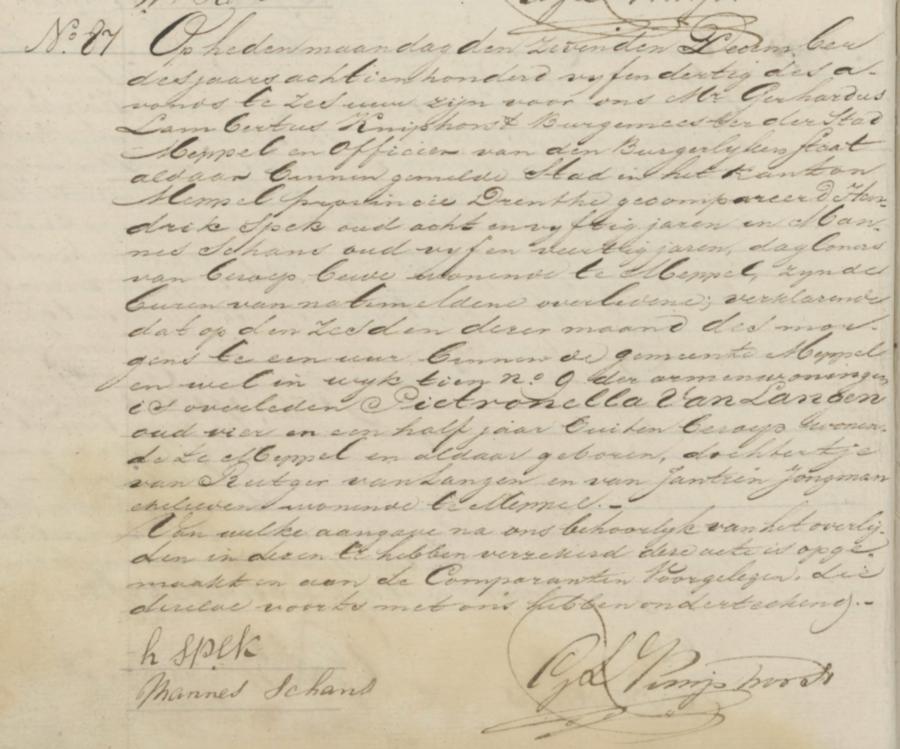 No. 87 Op heden maandag den zevenden December
des jaars achttienhonderd vyf en dertig des a-
vonds te zes uur zijn voor ons Mr. Gerhardus
Lambertus Kniphorst Burgemeester der Stad
Meppel en Officier van den Burgerlyken Staat
aldaar binnen gemelde Stad in het Kanton
Meppel provincie Drenthe gecompareerd Hen-
drik Spek oud acht en vyftig jaren en Man-
nes Schans oud vyf en veertig jaren, dagloners
van beroep beide wonende te Meppel, zynde
buren van natemeldene overledene; verklarende
dat op den zesden dezer maand des mor-
gens te een uur binnen de gemeente Meppel
en wel in wyk tien no. 9 der armenwoningen
is overleden Pietronella Van Langen
oud vier en een half jaar buiten beroep wonen-
de te Meppel en aldaar geboren, dochtertje
van Rutger van Langen en van Jantien Jongman
ehelieden wonende te Meppel. -
Van welke aangave na ons behoorlyk van het overly-
den in dezen te hebben verzekerd deze acte is opge-
maakt en aan de Comparanten Voorgelezen, die
dezelve voorts met ons hebben ondertekend. -
h spek
Mannes Schans
GL Kniphorst